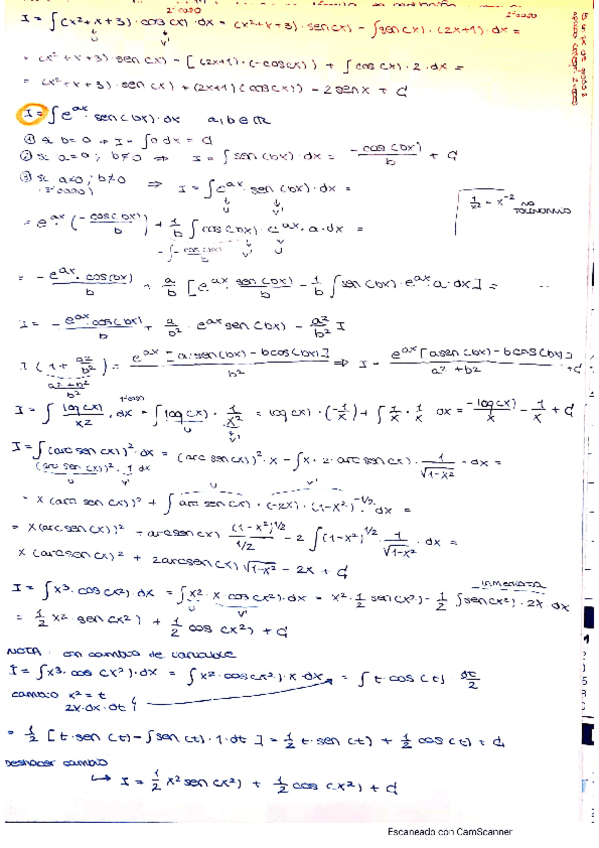 2º caso
I = ∫(x²+x+3)·cos(x)·dx = (x²+x+3)·sen(x) − ∫sen(x)·(2x+1)·dx =
u v'
= (x²+x+3)·sen(x) − [(2x+1)·(−cos(x)) + ∫cos(x)·2·dx =
= (x²+x+3)·sen(x) + (2x+1)(cos(x)) − 2senx + C
I = ∫e^ax·sen(bx)·dx a,b∈ℝ
① si b=0 ⇒ I = ∫0dx = C
② si a=0; b≠0 ⇒ I = ∫sen(bx)·dx = −cos(bx)/b + C
③ si a≠0; b≠0 ⇒ I = ∫e^ax·sen(bx)·dx =
u v'
1/x² = x^−2 NO
= e^ax·(−cos(bx)/b) + 1/b ∫cos(bx)·e^ax·a·dx =
= −e^ax·cos(bx)/b + a/b [e^ax·sen(bx)/b − 1/b ∫sen(bx)·e^ax·a·dx] =
I = −e^ax·cos(bx)/b + a/b²·e^ax sen(bx) − a²/b² I
I(1 + a²/b²) = e^ax = a·sen(bx) − bcos(bx)]/b² ⇒ I = e^ax[asen(bx) − bcos(bx)]/a²+b² + C
a²+b²/b²
I = ∫log(x)/x²·dx = ∫log(x)·1/x² = log(x)·(−1/x) + ∫1/x·1/x dx = −log(x)/x − 1/x + C
u v'
I = ∫(arcsen(x))²·dx = (arcsen(x))²·x − ∫x·2·arcsen(x)·1/√(1−x²)·dx =
(arcsen(x))²·1 dx
u v'
= x(arcsen(x))² + ∫arcsen(x)·(−2x)·(1−x²)^−1/2·dx =
= x(arcsen(x))² + arcsen(x)(1−x²)^1/2 / 1/2 − 2∫(1−x²)^1/2·1/√(1−x²)·dx =
x(arcsen(x))² + 2arcsen(x)√(1−x²) − 2x + C
inmediata
I = ∫x³·cos(x²)·dx = ∫x²·x·cos(x²)·dx = x²·1/2 sen(x²) − 1/2 ∫sen(x²)·2x dx
u v'
= 1/2 x²·sen(x²) + 1/2 cos(x²) + C
NOTA: con cambio de variable
I = ∫x³·cos(x²)·dx = ∫x²·cos(x²)·x·dx = ∫t·cos(t) dt/2
cambio x²=t
2x·dx=dt
= 1/2 [t·sen(t) − ∫sen(t)·1·dt] = 1/2 t·sen(t) + 1/2 cos(t) + C
Deshacer cambio
↳ I = 1/2 x²sen(x²) + 1/2 cos(x²) + C
Escaneado con CamScanner